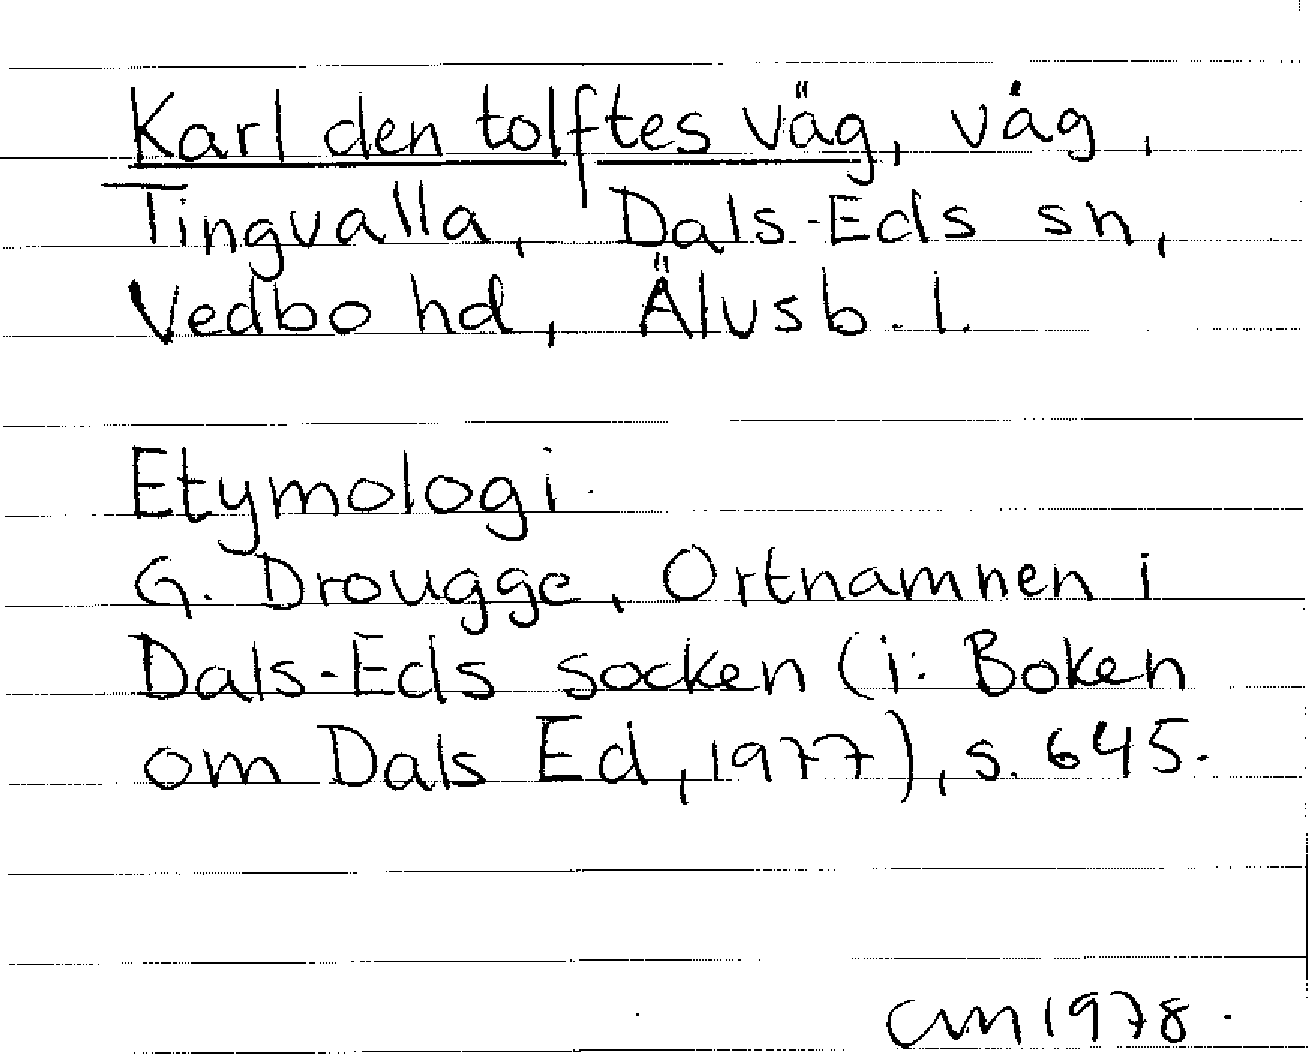 Karl den tolftes väg, väg,
Tingvalla, Dals-Eds sn,
Vedbo hd, Älvsb. l.
Etymologi.
G. Drougge, Ortnamnen i
Dals-Eds socken (i: Boken
om Dals Ed, 1977), s. 645.
CM 1978.